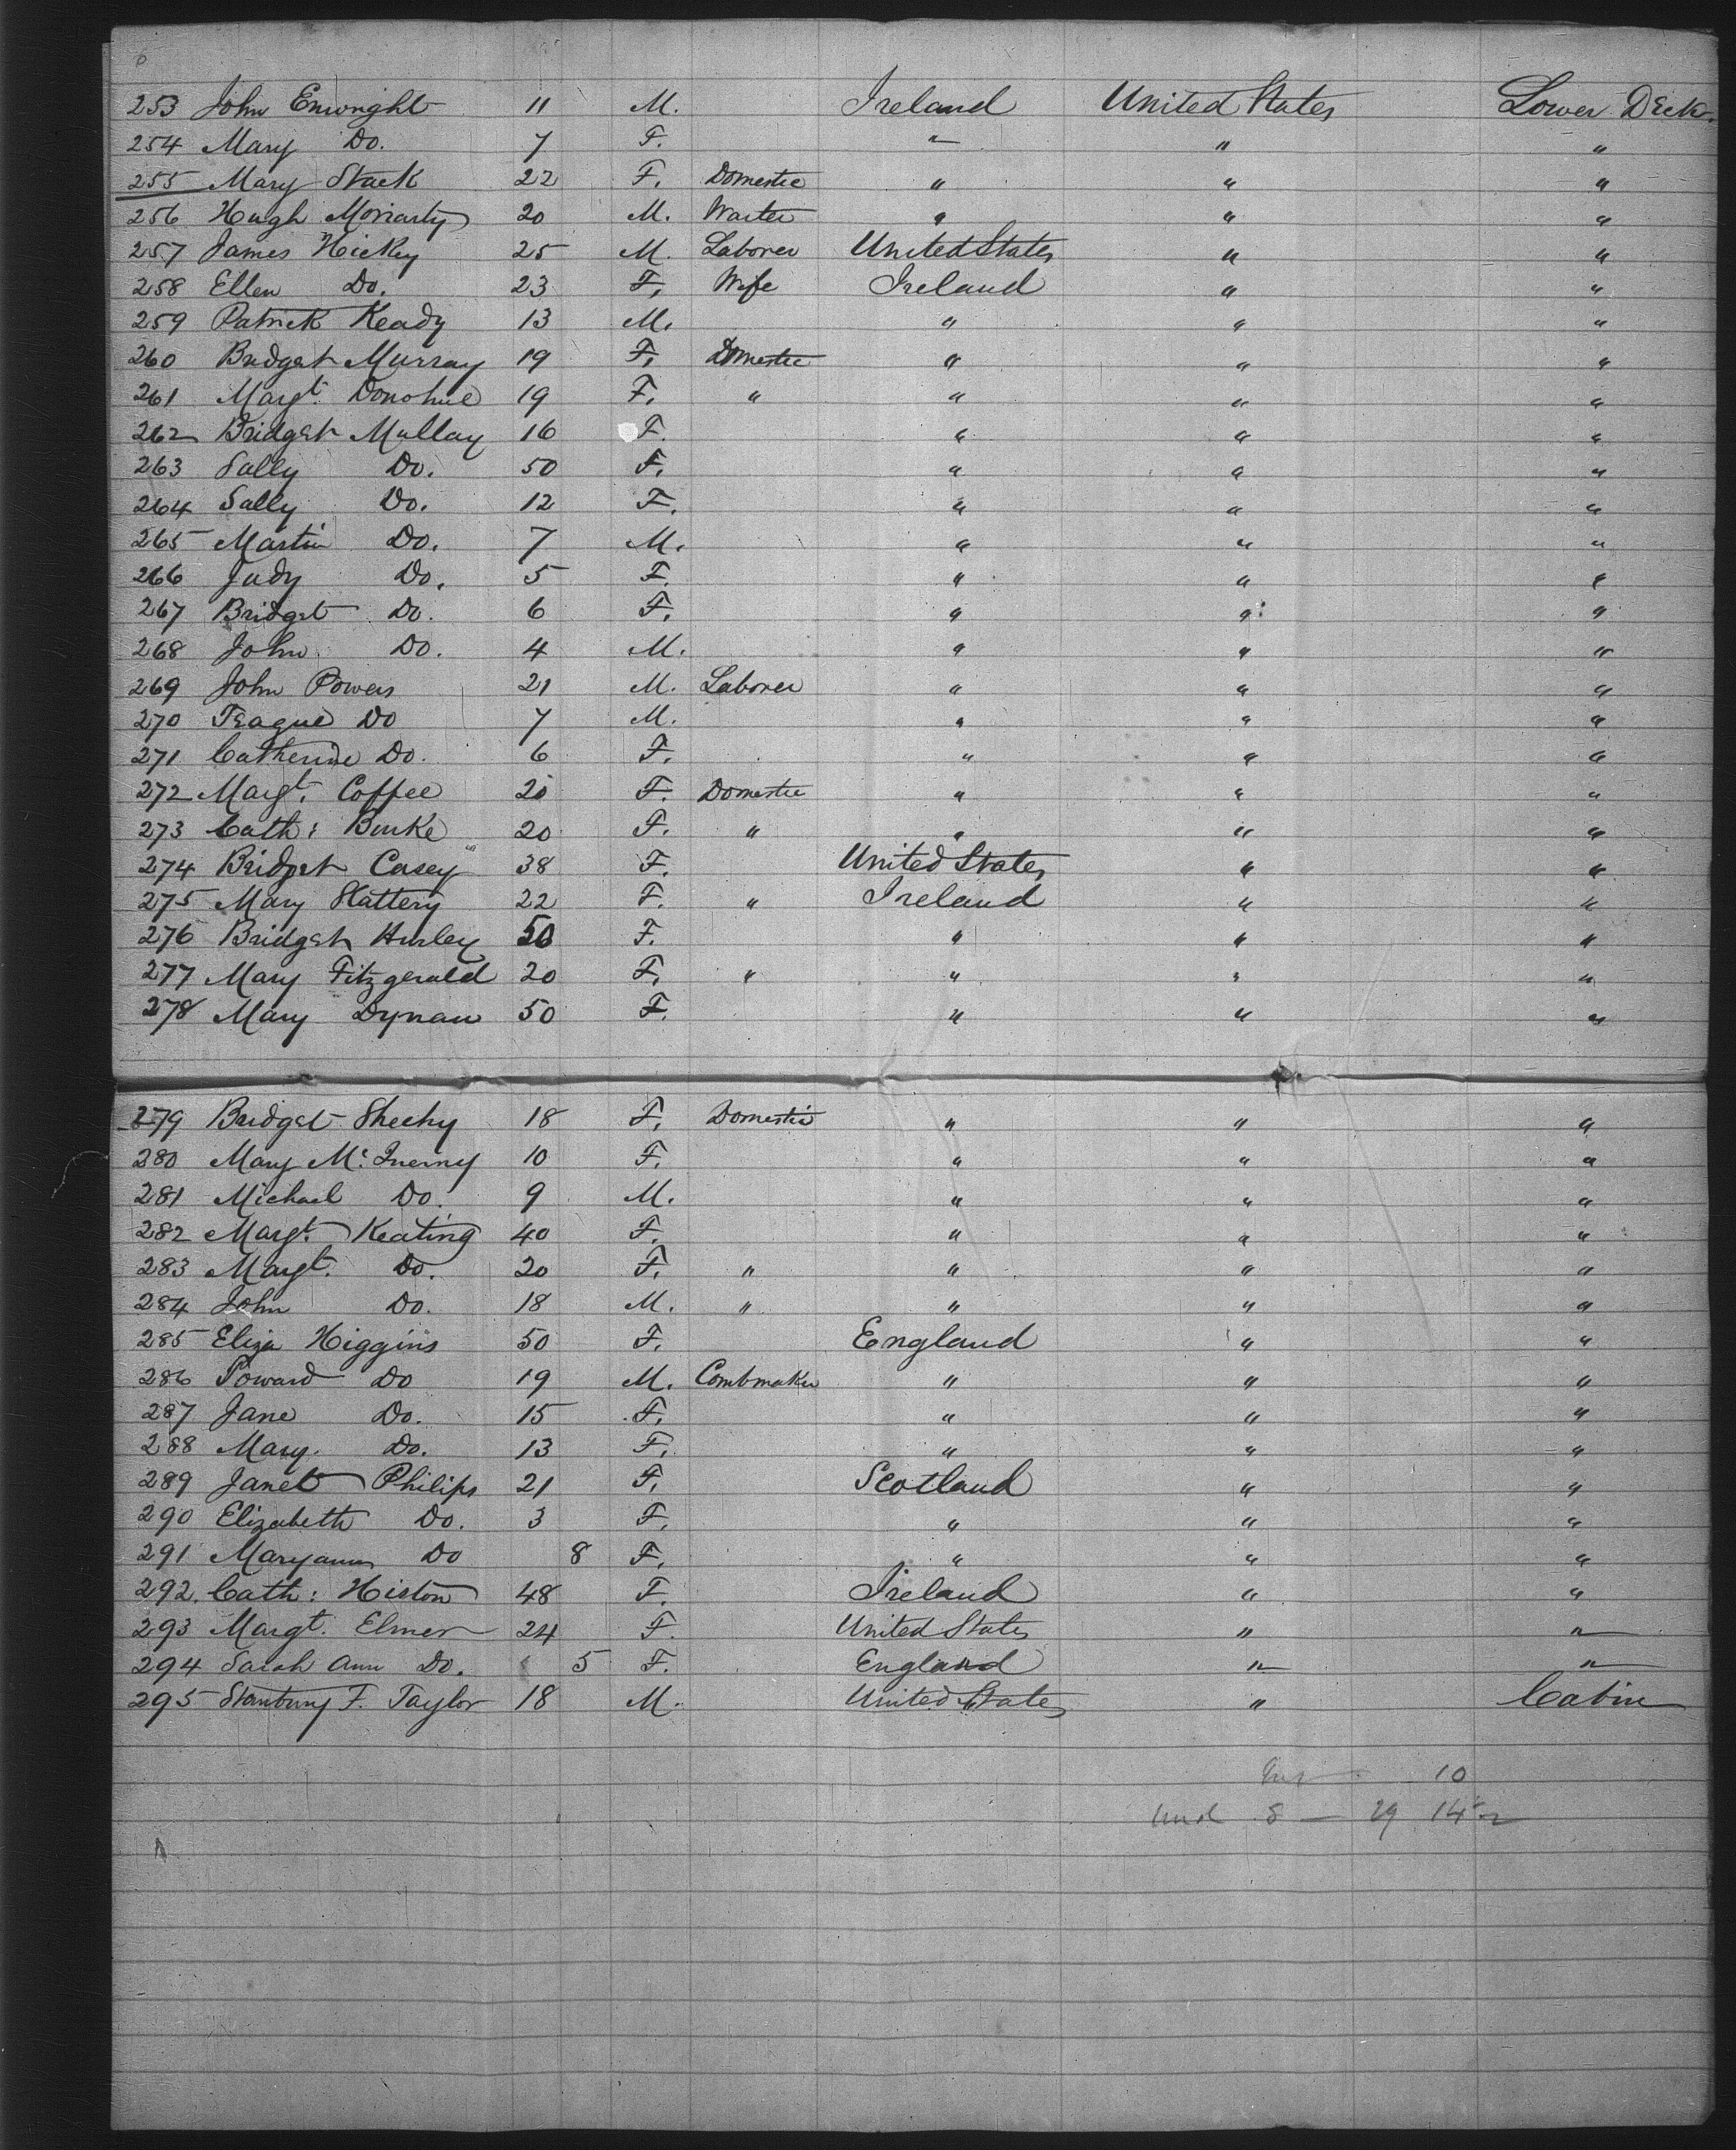 253 John Enwright 11 M. Ireland United States Lower Deck.
254 Mary Do. 7 F. " " "
255 Mary Stack 22 F. Domestic " " "
256 Hugh Moriarty 20 M. Waiter " " "
257 James Hickey 25 M. Laborer United States " "
258 Ellen Do. 23 F. Wife Ireland " "
259 Patrick Keady 13 M. " " "
260 Bridget Murray 19 F. Domestic " " "
261 Margt. Donohue 19 F. " " " "
262 Bridget Mullay 16 F. " " "
263 Sally Do. 50 F. " " "
264 Sally Do. 12 F. " " "
265 Martin Do. 7 M. " " "
266 Judy Do. 5 F. " " "
267 Bridget Do. 6 F. " " "
268 John Do. 4 M. " " "
269 John Powers 21 M. Laborer " " "
270 Teague Do 7 M. " " "
271 Catherine Do. 6 F. " " "
272 Margt. Coffee 20 F. Domestic " " "
273 Cath: Burke 20 F. " " " "
274 Bridget Casey 38 F. United States " "
275 Mary Slattery 22 F. " Ireland " "
276 Bridget Hurley 50 F. " " "
277 Mary Fitzgerald 20 F. " " " "
278 Mary Dynan 50 F. " " "
279 Bridget Sheehy 18 F. Domestic " " "
280 Mary Mc. Inerny 10 F. " " "
281 Michael Do. 9 M. " " "
282 Margt. Keating 40 F. " " "
283 Margt. Do. 20 F. " " " "
284 John Do. 18 M. " " " "
285 Eliza Higgins 50 F. England " "
286 Do 19 M. Combmaker " " "
287 Jane Do. 15 F. " " "
288 Mary. Do. 13 F. " " "
289 Janet Philips 21 F. Scotland " "
290 Elizabeth Do. 3 F. " " "
291 Maryann Do 8 F. " " "
292 Cath: Histon 48 F. Ireland " "
293 Margt. Elmer 24 F. United States " "
294 Sarah Ann Do. 5 F. England " "
295 Stanbury F. Taylor 18 M. United States " Cabin
10
und 8 — 29 14